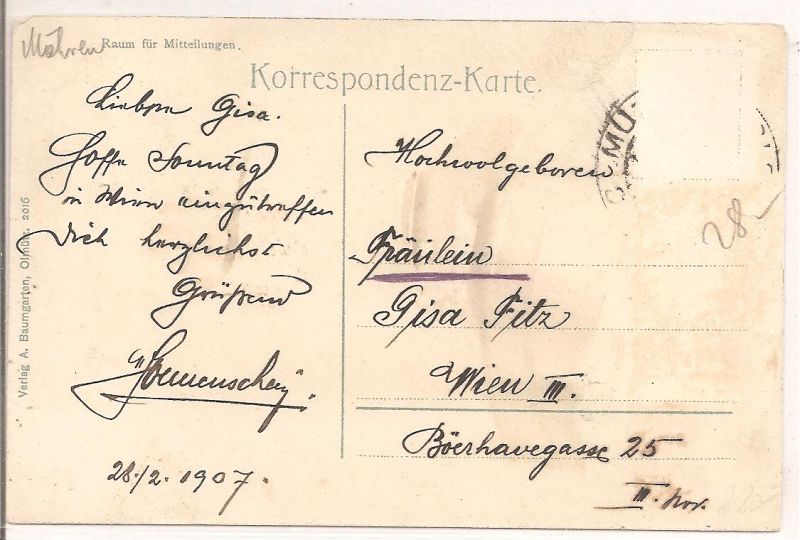 Mähren
Raum für Mitteilungen.
Korrespondenz-Karte.
Liebste Gisa.
Hoffe Sonntag
in Wien einzutreffen
Dich herzlichst
Grüßend
28./2. 1907.
Hochwolgeboren
Fräulein
Gisa Fitz
Wien III.
Böerhavegasse 25
III.
28-
Verlag A. Baumgarten, Olmütz. 2016